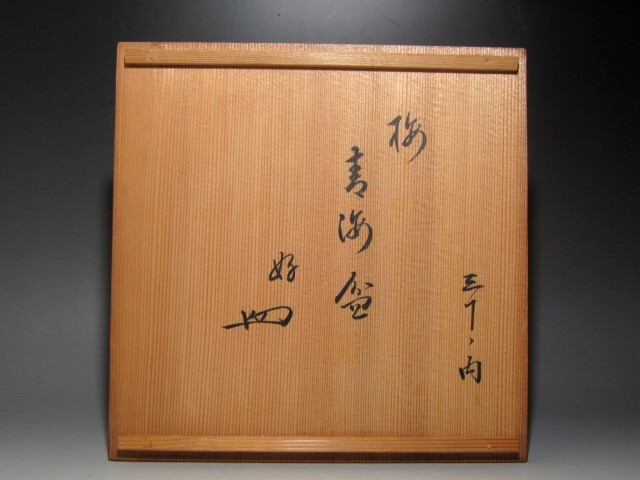 三十ノ内
梅
青海盆
好